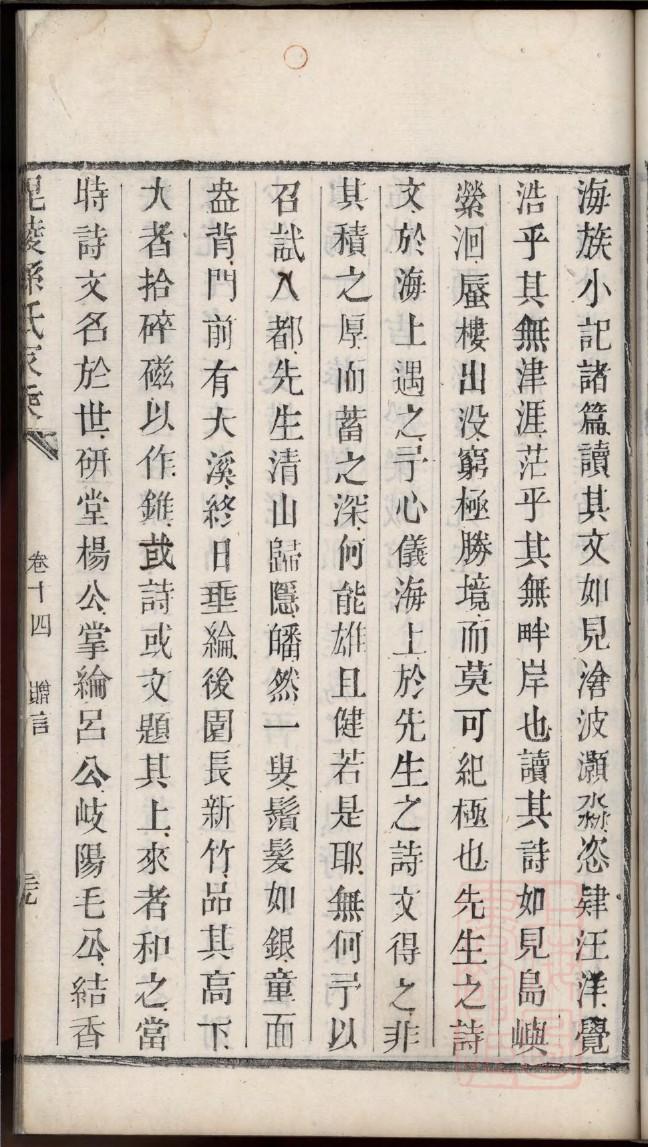 海族小記諸篇讀其文如見滄波灝淼恣肄汪洋覺
浩乎其無津涯茫乎其無畔岸也讀其詩如見島嶼
縈洄蜃樓出没窮極勝境而莫可紀極也先生之詩
文於海上遇之予心儀海上於先生之詩文得之非
其積之厚而蓄之深何能雄且健若是耶無何予以
召試入都先生清山歸隱皤然一叟鬚髮如銀童面
盎背門前有大溪終日垂綸後園長新竹品其高下
大者拾碎磁以作錐或詩或文題其上來者和之當
時詩文名於世研堂楊公掌綸呂公岐陽毛公結香
毘陵孫氏家乘
卷十四
贈言